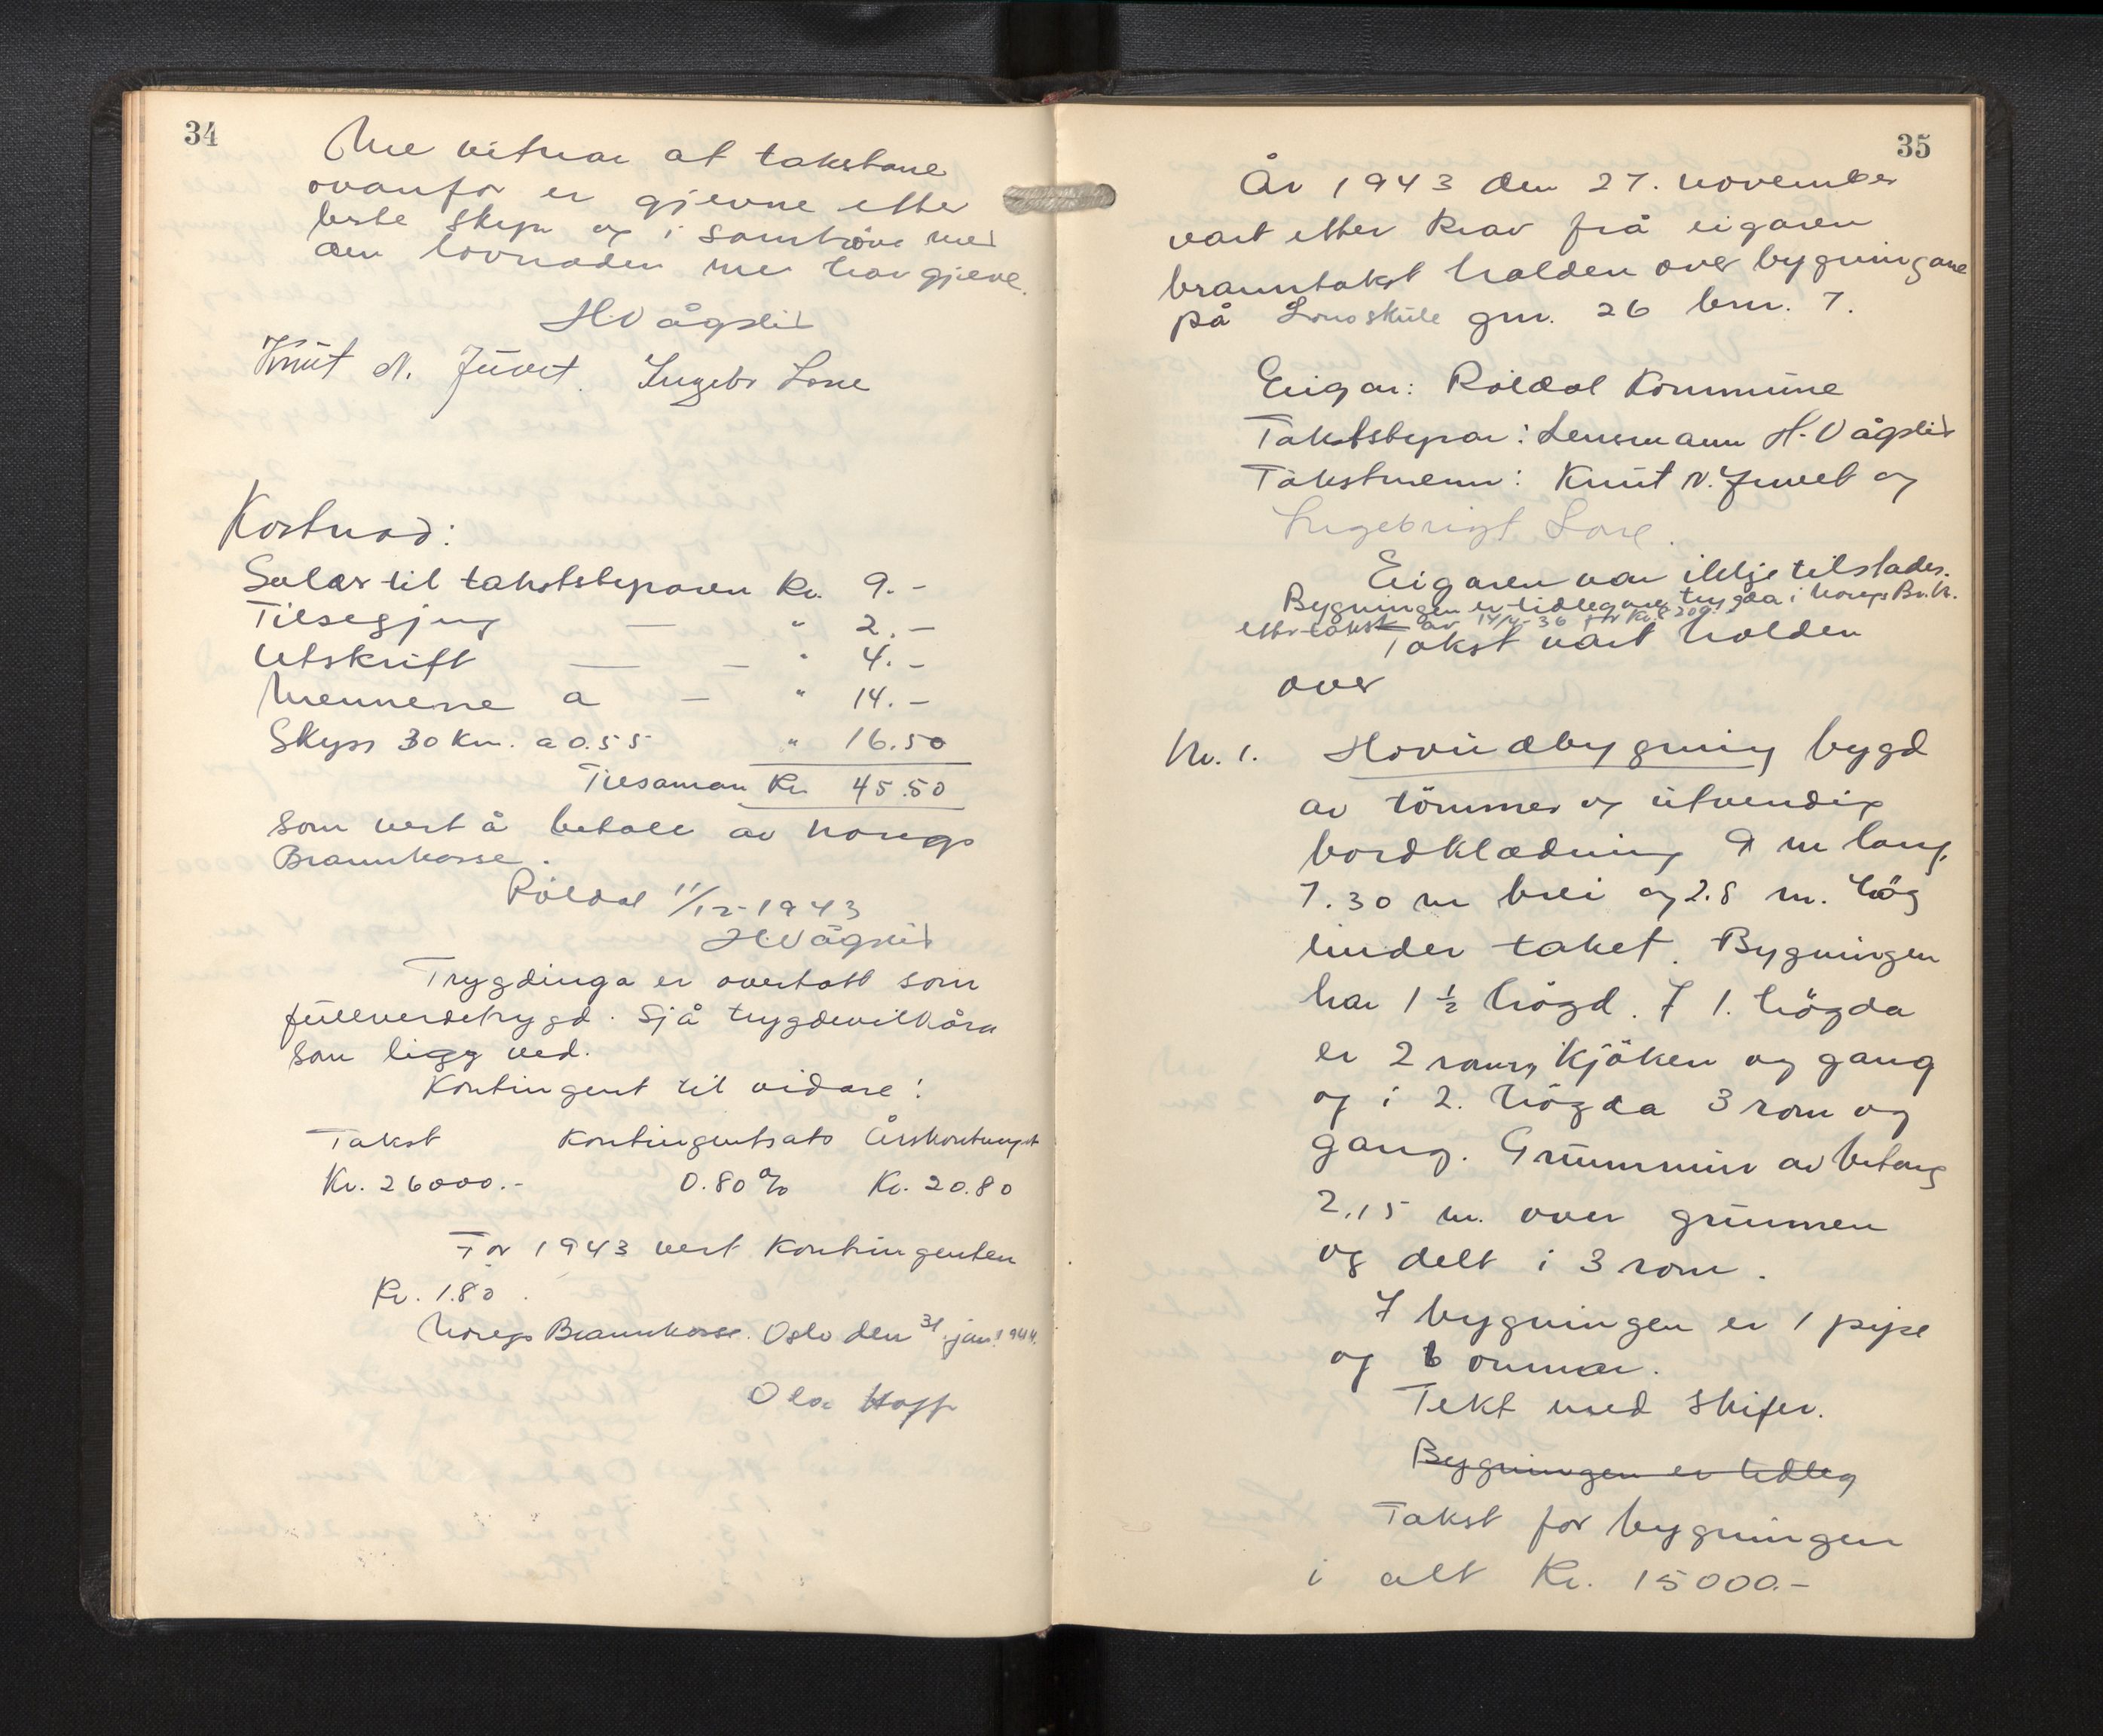 34
Me vitnar at takstane
ovanfor er gjevne etter
beste skjyn og i samhöve med
den lovnaden me har gjeve.
H. Vågslid
Knut N. Juvet. Ingebr Lone
Kostnad:
Salær til takststyraren Kr. 9.-
Tilsegjing — " 2.-
Utskrift — - " 4.-
Mennene a - " 14.-
Skyss 30 km. a 0.55 " 16.50
Tilsaman Kr 45.50
som vert å betale av Noregs
Brannkasse.
Röldal 11/12-1943
H. Vågslid
Trygdinga er overtatt som
fullverdetrygd. Sjå trygdevilkåra
som ligg ved.
Kontingent til vidare:
Takst Kontingentsats Årskontingent
Kr. 26000.- 0.80 ‰ Kr. 20.80
For 1943 vert kontingenten
Kr. 1.80.
Noregs Brannkasse. Oslo den 31. jan. 1944.
Ola Hoff
35
År 1943 den 27. november
vart etter krav frå eigaren
branntakst halden over bygningane
på Lone skule gnr. 26 bnr. 7.
Eigar: Röldal Kommune
Takststyrar: Lensmann H. Vågslid
Takstmenn: Knut N. Juvet og
Ingebrigt Lone.
Eigaren var ikkje tilstades.
Bygningen er tidlegare trygda i Noregs Br.k.
etter takst av 14/4-36 for Kr.
Takst vart halden
over
Nr. 1. Hovudbygning bygd
av tömmer og utvendig
bordklædning 9 m lang,
7.30 m brei og 2.8 m. hög
under taket. Bygningen
har 1 ½ högd. I 1. högda
er 2 rom, kjöken og gang
og i 2. högda 3 rom og
gang. Grunnmur av betong
2.15 m. over grunnen
og delt i 3 rom.
I bygningen er 1 pipe
og 6 omnar.
Tekt med skifer.
Bygningen er tidleg
Takst for bygningen
i alt Kr. 15000.-